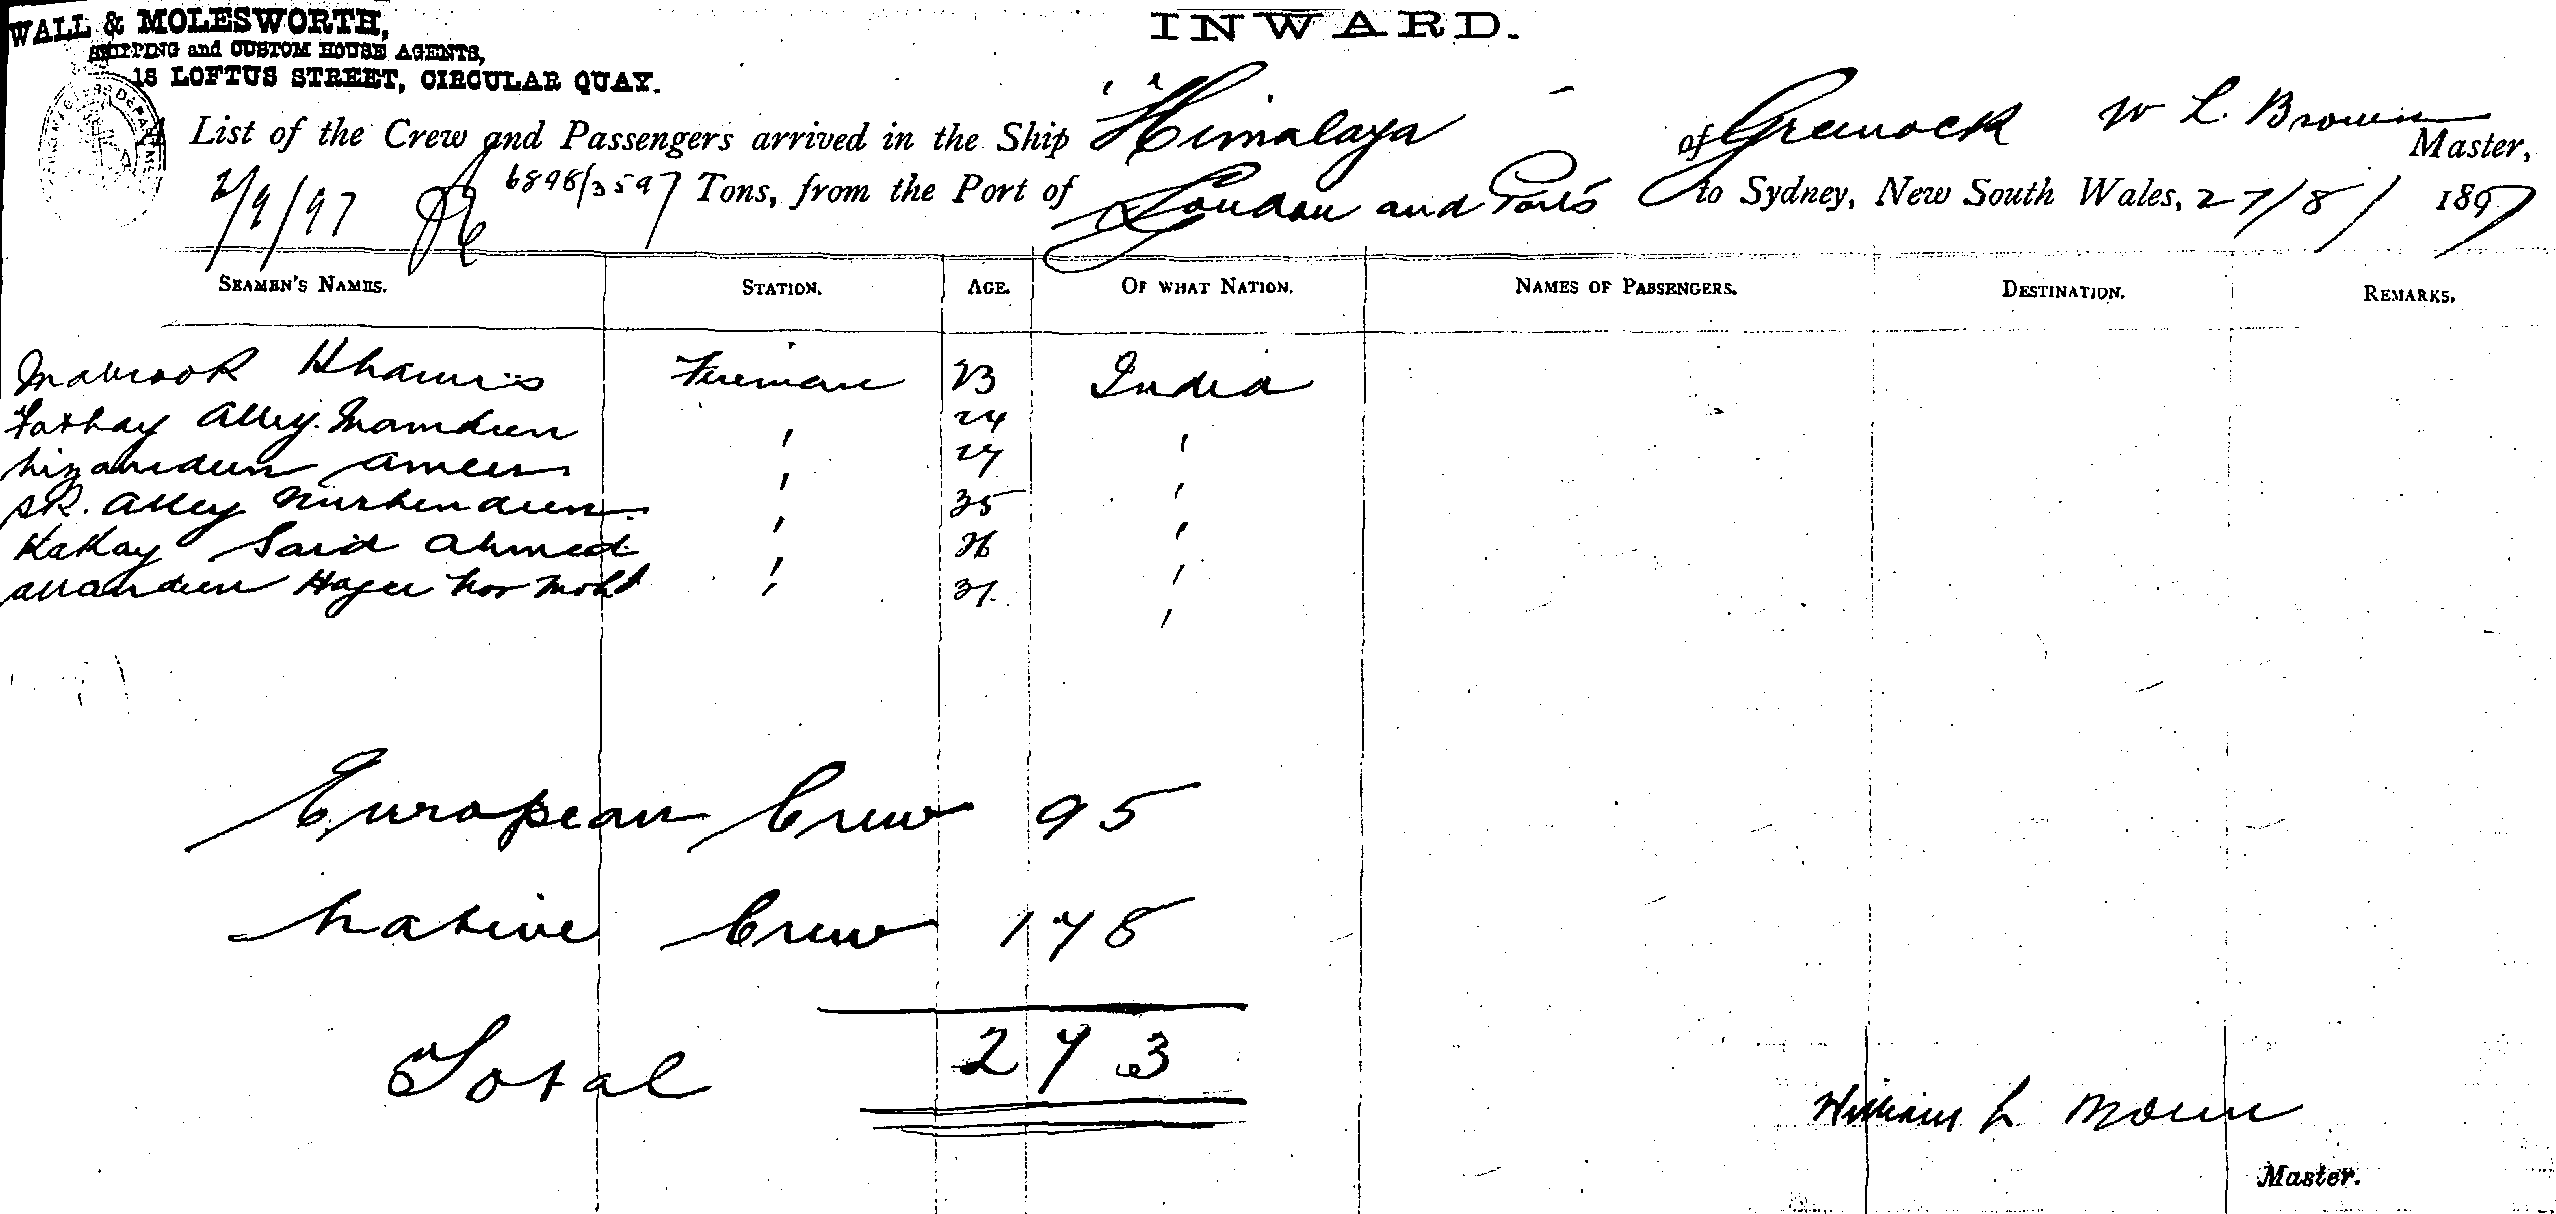 WALL & MOLESWORTH,
SHIPPING and CUSTOM HOUSE AGENTS,
18 LOFTUS STREET, CIRCULAR QUAY.
INWARD.
List of the Crew and Passengers arrived in the Ship "Himalaya" of Greenock W L. Brown Master,
2/9/97 6898/3597 Tons, from the Port of London and Ports to Sydney, New South Wales, 27/8/ 1897
SEAMEN'S NAMES. STATION. AGE. OF WHAT NATION. NAMES OF PASSENGERS. DESTINATION. REMARKS.
Mabrook Khamis Fireman 23 India
Fathay Alley Mamdeen ' 24 '
Nizamdeen Ameer ' 27 '
SK. Alley Nurhendeen ' 35 '
Kakay Said Ahmed ' 26 '
Allandeen Hajee Nor Mohd ' 37 '
European Crew 95
Native Crew 178
Total 273
William L Brown
Master.